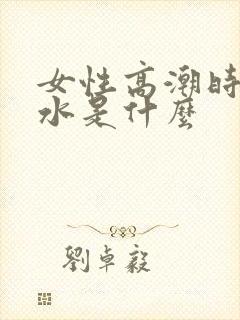 女性高潮時
水是什麼
劉卓毅